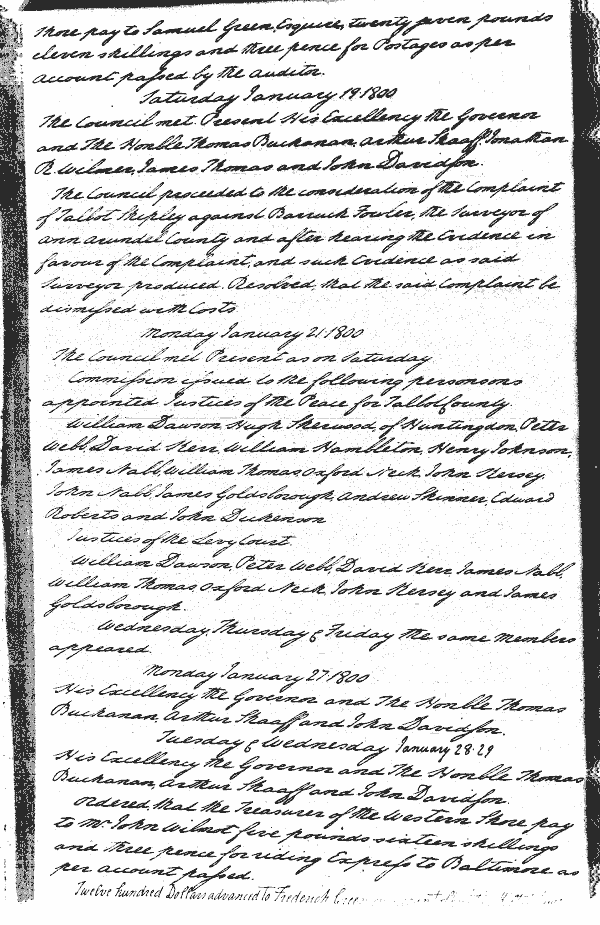 Shore pay to Samuel Green, Esquire, twenty seven pounds
eleven shillings and three pence for Postages as per
account passed by the auditor.
Saturday January 19. 1800
The Council met. Present His Excellency the Governor
and The Honble Thomas Buchanan, Arthur Shaaff, Jonathan
R. Wilmer, James Thomas and John Davidson.
The Council proceeded to the consideration of the Complaint
of Talbot Shipley against Barruck Fowler, the Surveyor of
Ann Arundel County and after hearing the Evidence in
favour of the Complaint, and such Evidence as said
Surveyor produced. Resolved, that the said Complaint be
dismissed with Costs
Monday January 21. 1800
The Council met Present as on Saturday
Commission issued to the following personsons
appointed Justices of the Peace for Talbot County.
William Dawson, Hugh Sherwood, of Huntingdon, Peter
Webb, David Kerr, William Hambleton, Henry Johnson,
James Nabb, William Thomas Oxford Neck, John Kersey.
John Nabb, James Goldsborough, Andrew Skinner, Edward
Roberts and John Dickenson
Justices of the Levy Court.
William Dawson, Peter Webb, David Kerr, James Nabb,
William Thomas, Oxford Neck, John Kersey and James
Goldsborough.
Wednesday, Thursday & Friday the same members
appeared.
Monday January 27. 1800
His Excellency the Governor and The Honble Thomas
Buchanan, Arthur Shaaff and John Davidson.
Tuesday & Wednesday January 28.29
His Excellency the Governor and The Honble Thomas
Buchanan, Arthur Shaaff and John Davidson.
Ordered, that the Treasurer of the Western Shore pay
to Mr. John Wilmot five pounds sixteen shillings
and three pence for riding Express to Baltimore as
per account passed.
Twelve hundred Dollars advanced to Frederick Green